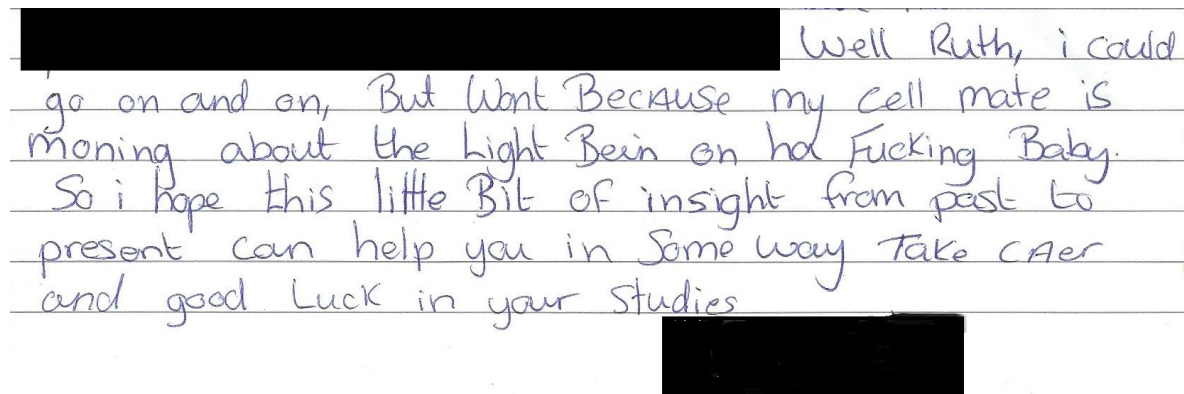 Well Ruth, i could
go on and on, But Wont BecAuse my cell mate is
moning about the Light Bein on ha Fucking Baby.
So i hope this little Bit of insight from past to
present can help you in Some way Take CAer
and good Luck in your Studies